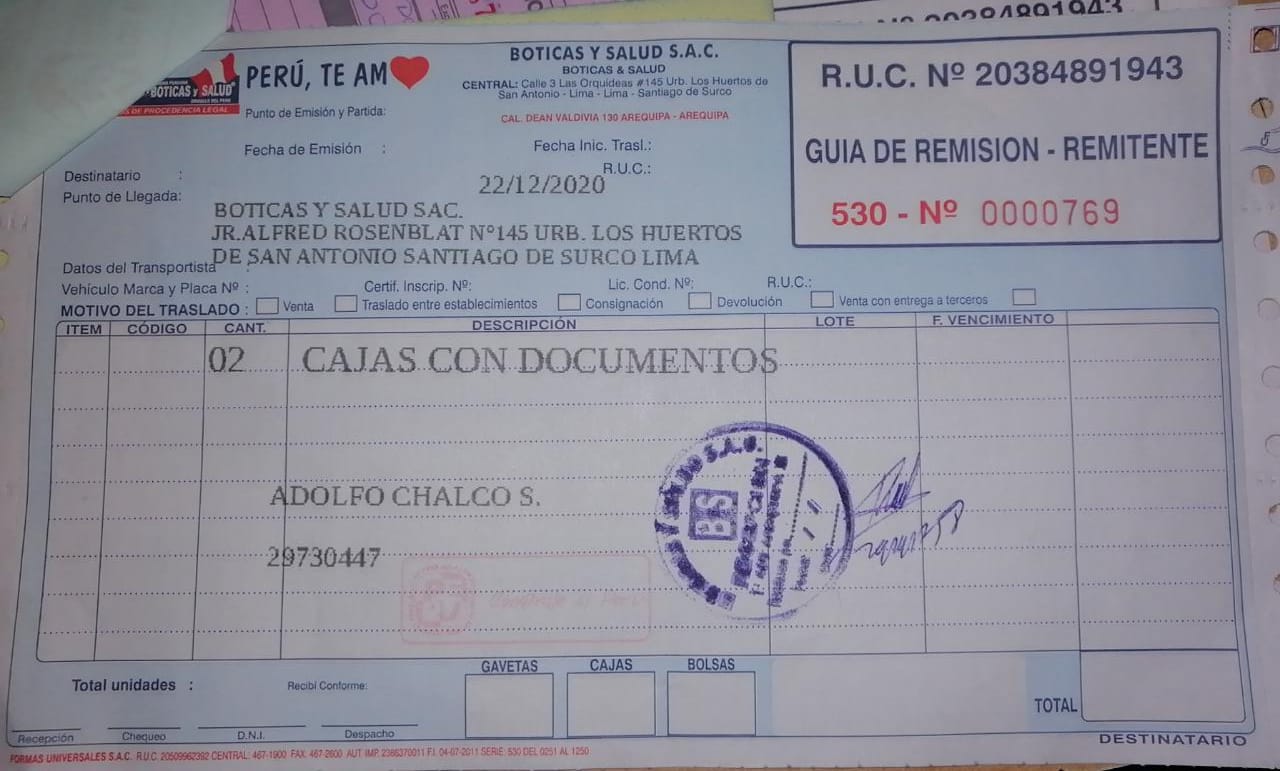 Nº 20384891943
BOTICAS y SALUD
DE PROCEDENCIA LEGAL
PERÚ, TE AM
BOTICAS Y SALUD S.A.C.
BOTICAS & SALUD
CENTRAL: Calle 3 Las Orquideas #145 Urb. Los Huertos de
San Antonio - Lima - Lima - Santiago de Surco
CAL. DEAN VALDIVIA 130 AREQUIPA - AREQUIPA
R.U.C. Nº 20384891943
GUIA DE REMISION - REMITENTE
530 - Nº 0000769
Punto de Emisión y Partida:
Fecha de Emisión :
Fecha Inic. Trasl.:
Destinatario :
R.U.C.:
22/12/2020
Punto de Llegada:
BOTICAS Y SALUD SAC.
JR.ALFRED ROSENBLAT Nº145 URB. LOS HUERTOS
DE SAN ANTONIO SANTIAGO DE SURCO LIMA
Datos del Transportista :
Vehículo Marca y Placa Nº : Certif. Inscrip. Nº: Lic. Cond. Nº: R.U.C.:
MOTIVO DEL TRASLADO : Venta Traslado entre establecimientos Consignación Devolución Venta con entrega a terceros
ITEM CÓDIGO CANT. DESCRIPCIÓN LOTE F. VENCIMIENTO
02 CAJAS CON DOCUMENTOS
ADOLFO CHALCO S.
29730447
S.A.C.
BS
Total unidades : Recibí Conforme: GAVETAS CAJAS BOLSAS
TOTAL
Recepción Chequeo D.N.I. Despacho
DESTINATARIO
FORMAS UNIVERSALES S.A.C. R.U.C. 20509962392 CENTRAL: 467-1900 FAX: 467-2600 AUT. IMP. 2386370011 F.I. 04-07-2011 SERIE: 530 DEL 0251 AL 1250